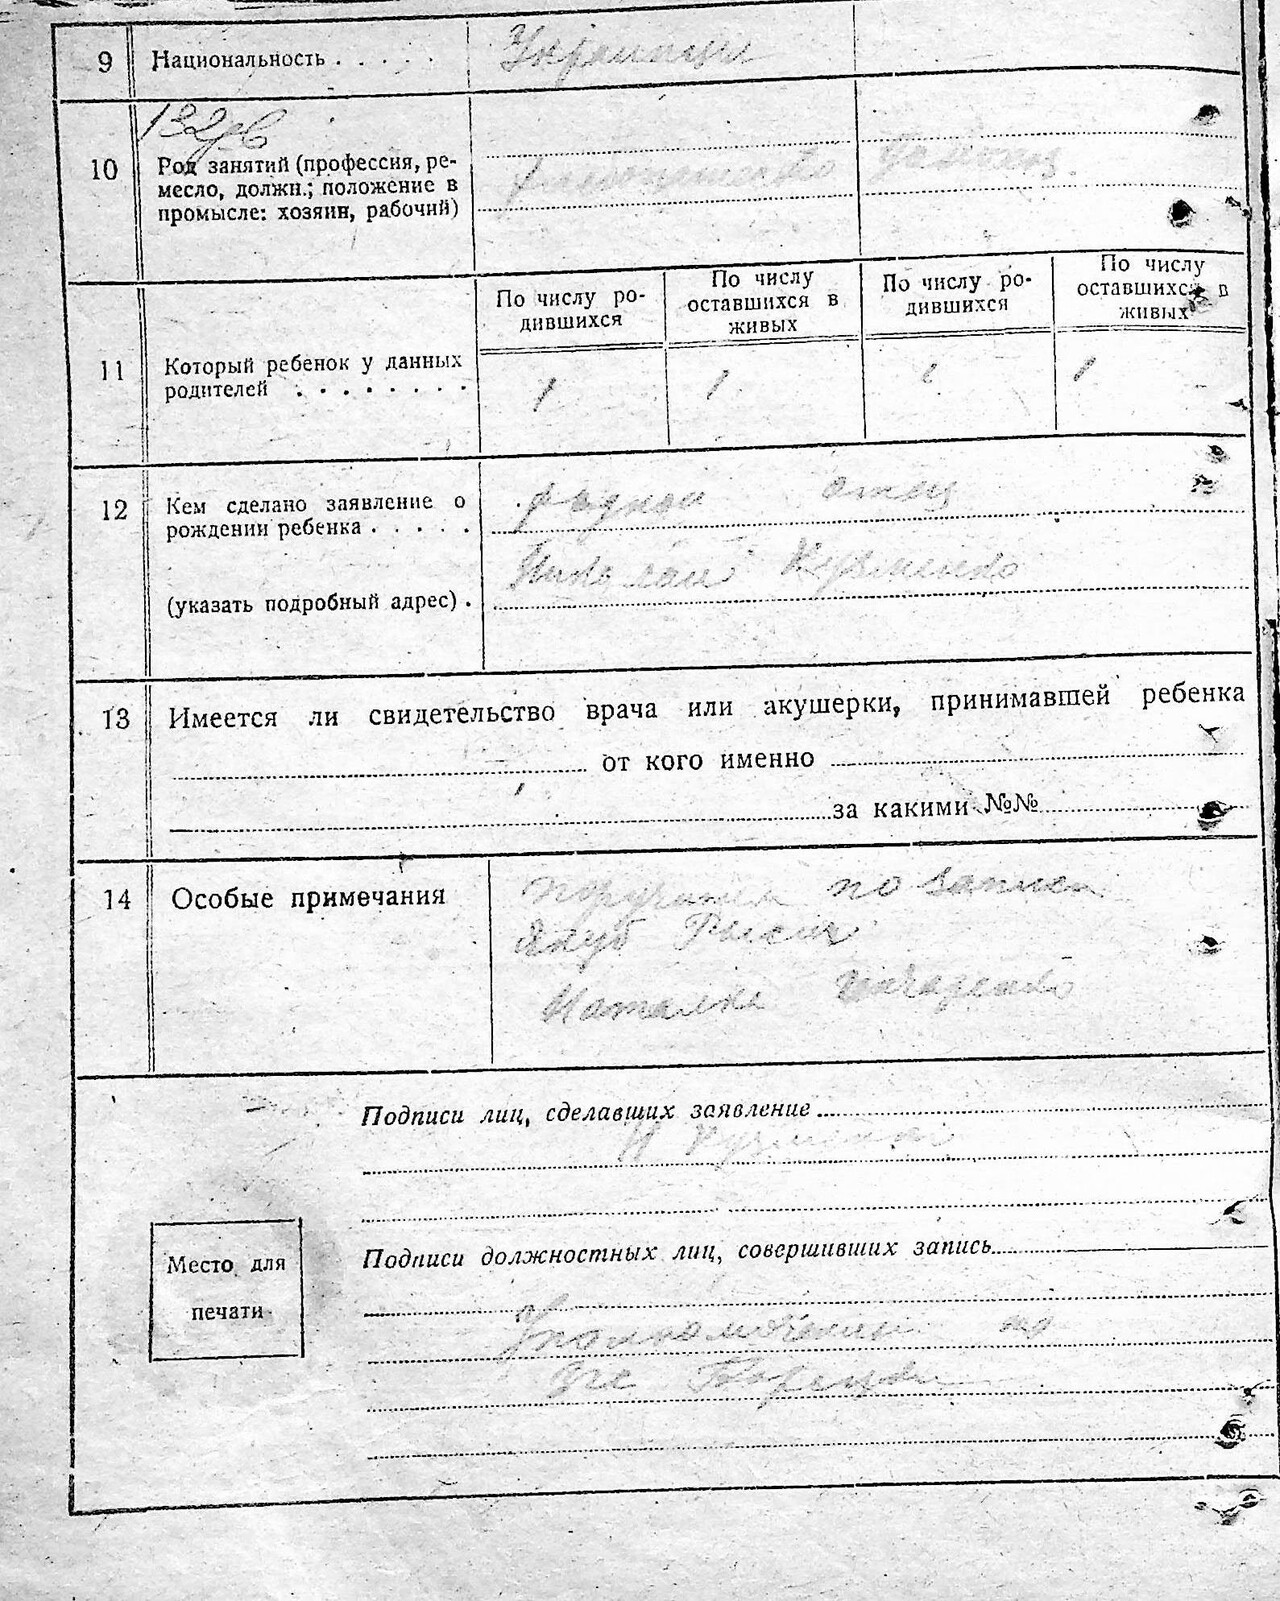 9 Национальность . . . . . Украинцы
10 Род занятий (профессия, ре-
месло, должн.; положение в
промысле: хозяин, рабочий)
По числу ро-
дившихся
По числу
оставшихся в
живых
По числу ро-
дившихся
По числу
оставшихся в
живых
11 Который ребенок у данных
родителей . . . . . . . .
1 1 1 1
12 Кем сделано заявление о
рождении ребенка . . . . .
родной отец
Николай Кузменко
(указать подробный адрес) .
13 Имеется ли свидетельство врача или акушерки, принимавшей ребенка
от кого именно
за какими №№
14 Особые примечания
по записи
Якуб
Наталка
Подписи лиц, сделавших заявление
Подписи должностных лиц, совершивших запись
Место для
печати